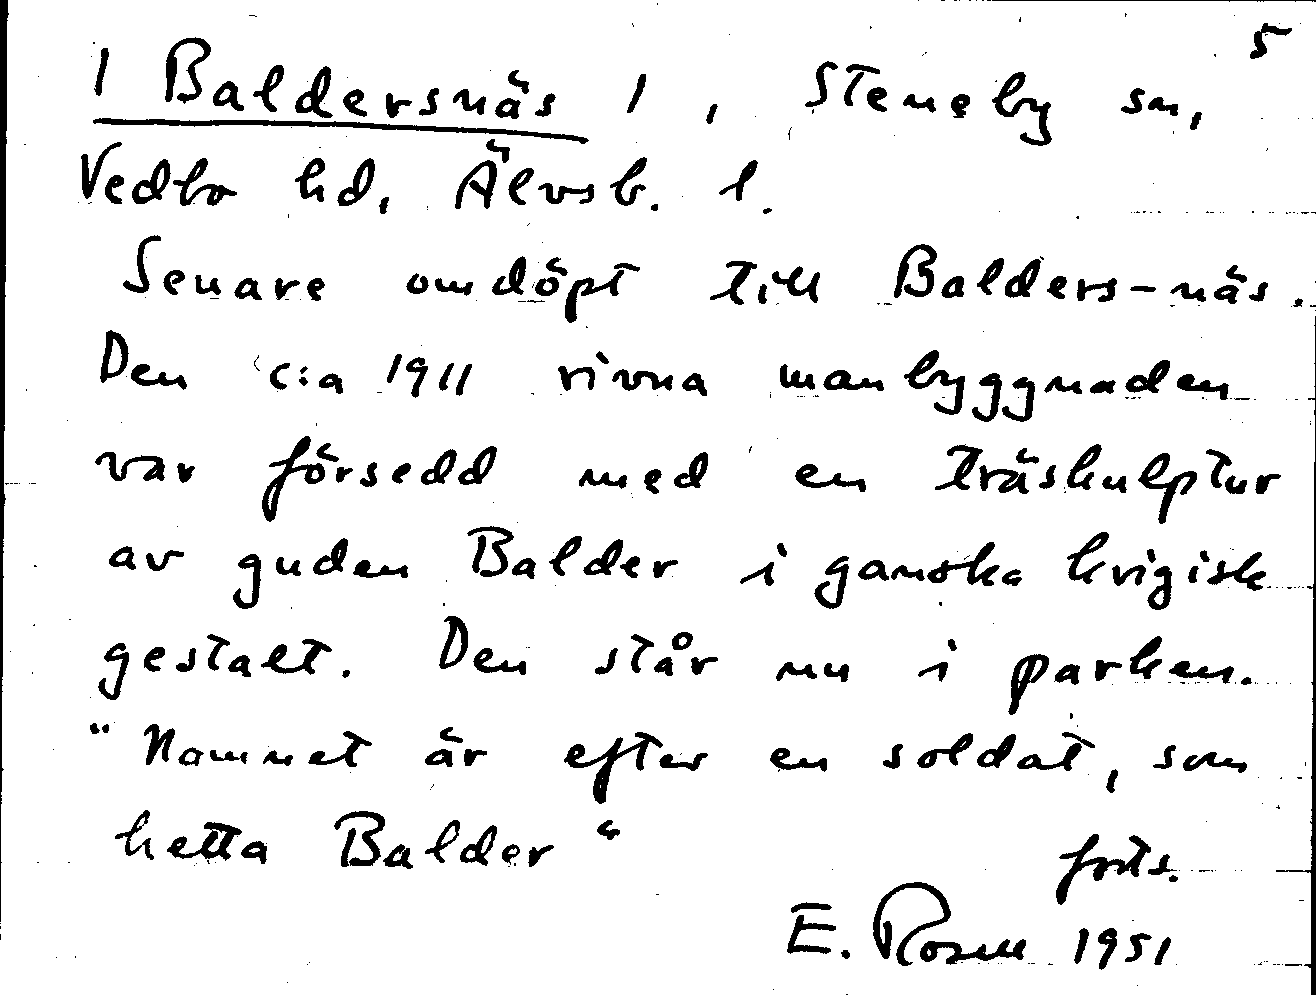 5
1 Baldersnäs 1, Steneby sn,
Vedbo hd, Älvsb. l.
Senare omdöpt till Balders-näs.
Den c:a 1911 rivna manbyggnaden
var försedd med en träskulptur
av guden Balder i ganska krigisk
gestalt. Den står nu i parken.
"Namnet är efter en soldat, som
hetta Balder"
forts.
E. Rosell 1951